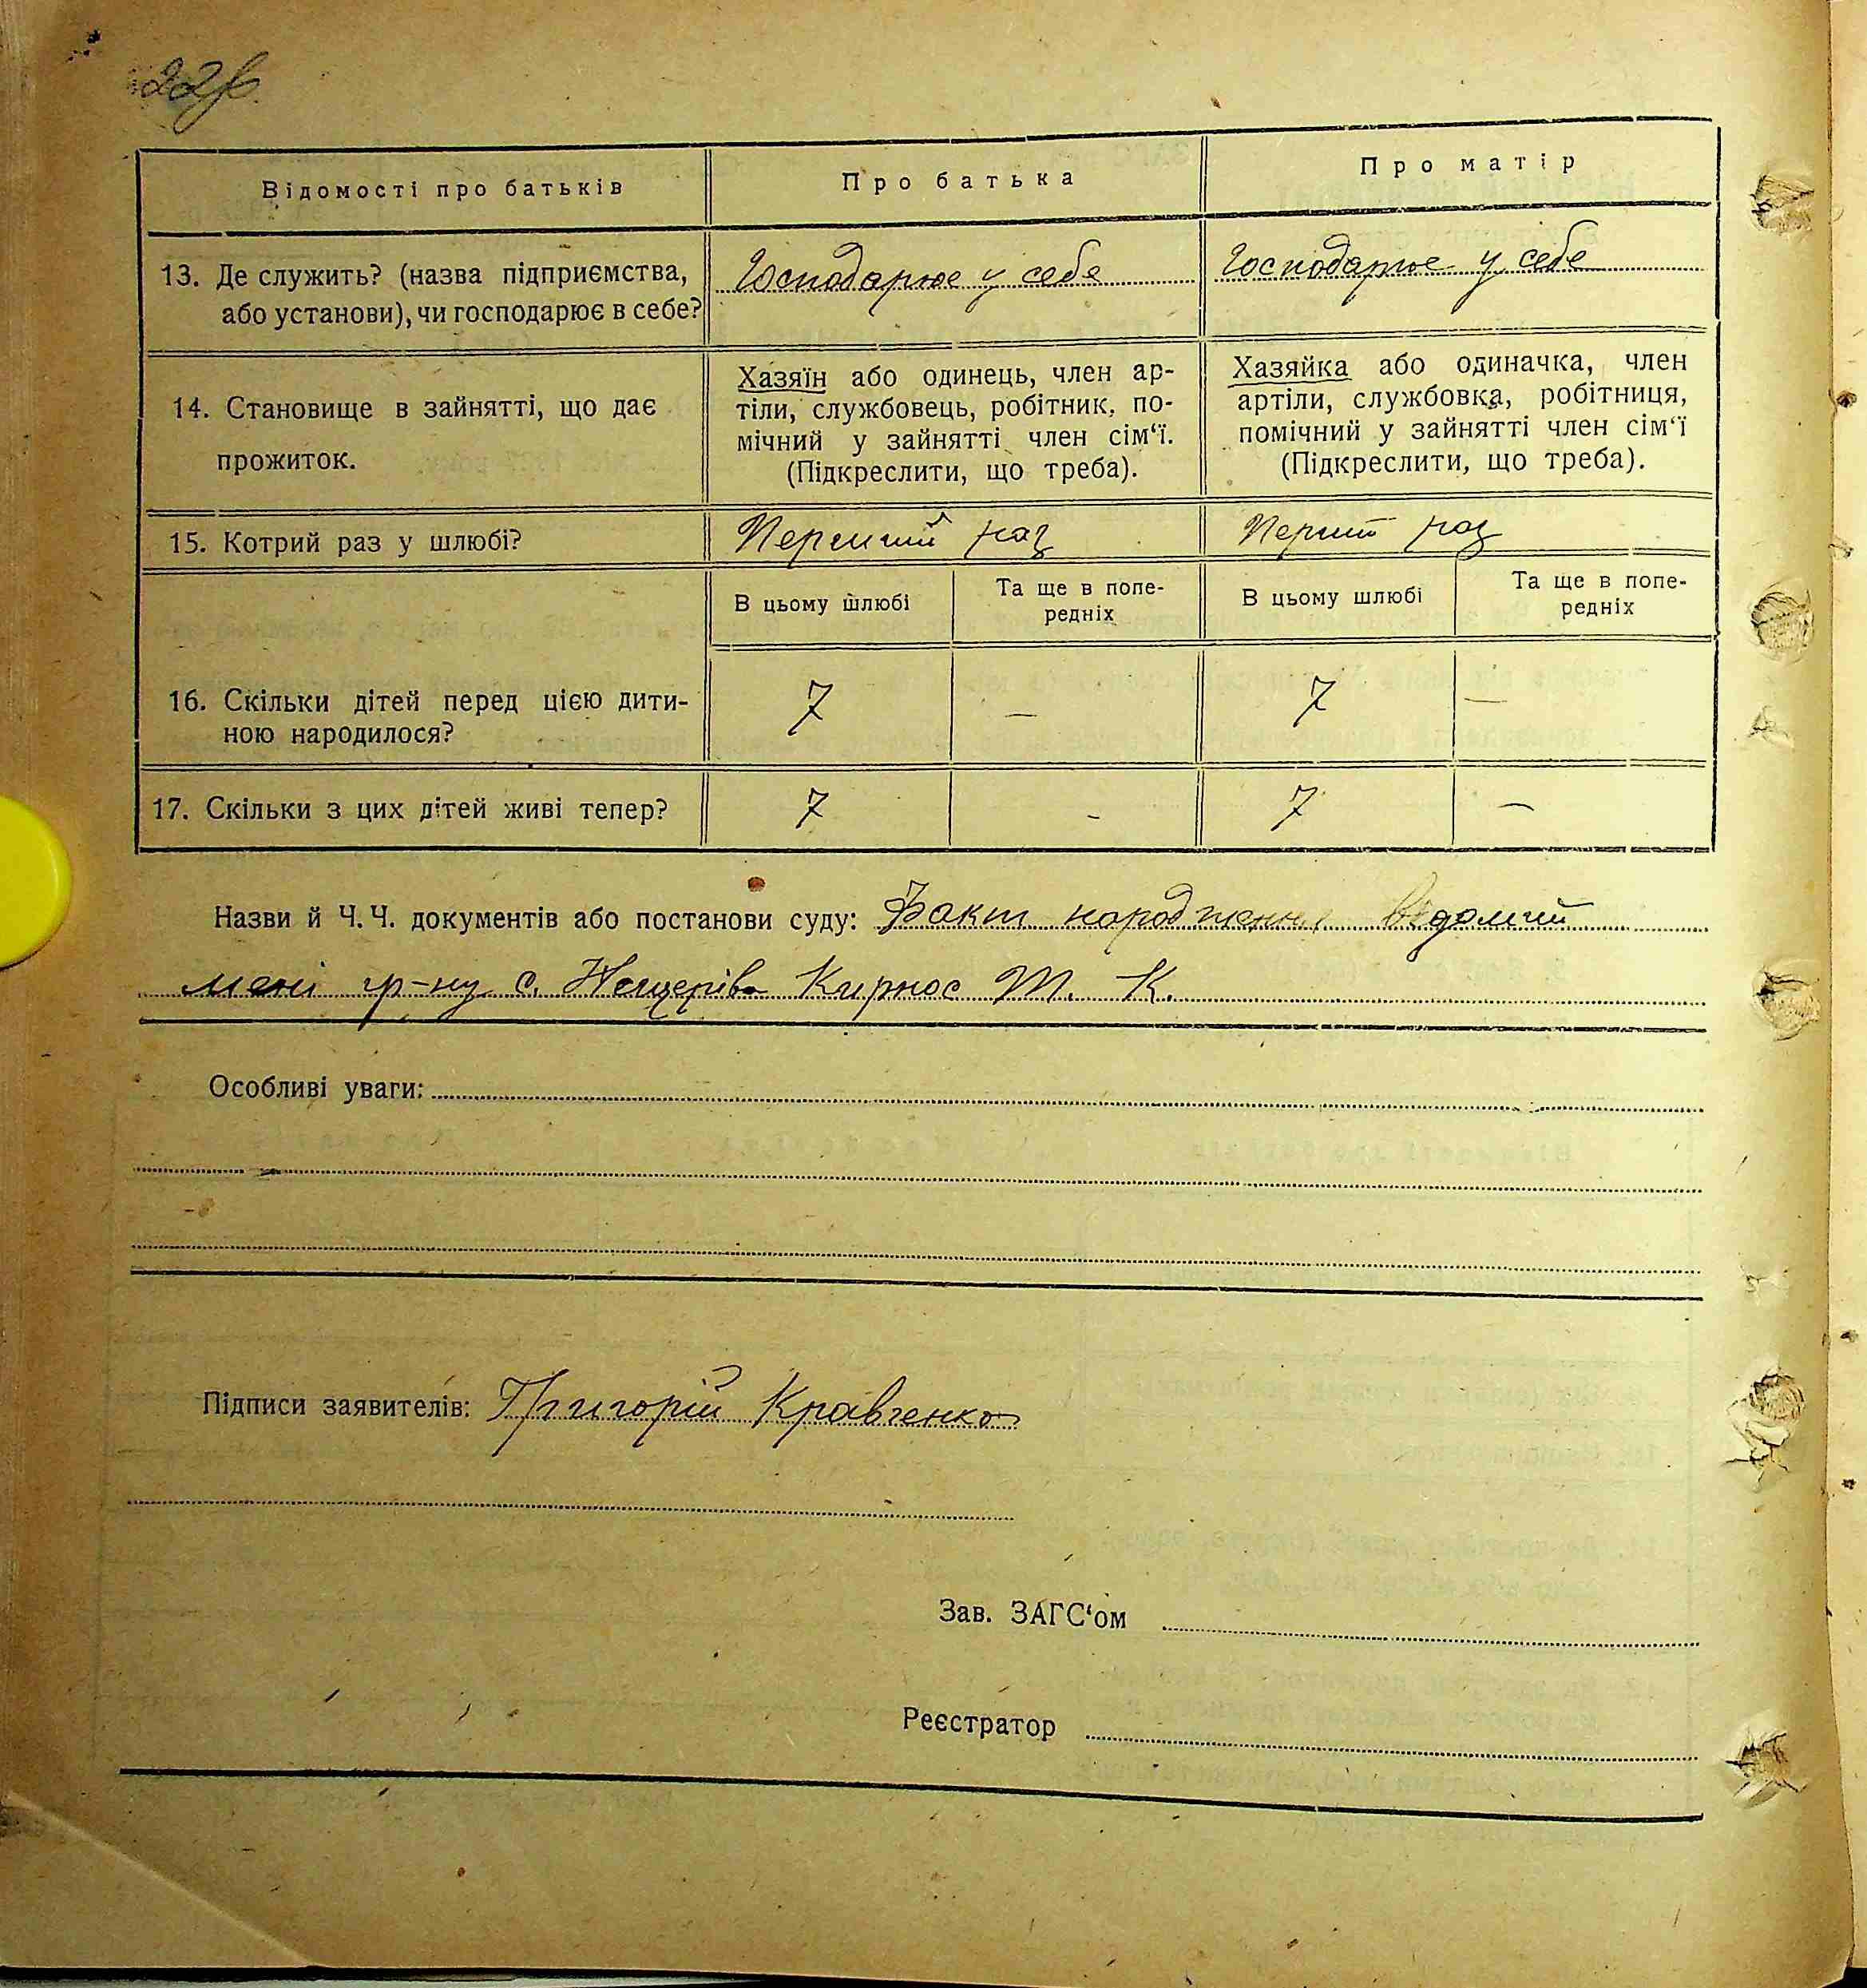 22в.
Відомості про батьків
Про батька
Про матір
13. Де служить? (назва підприємства,
або установи), чи господарює в себе?
Господарює у себе
Господарює у себе
14. Становище в зайнятті, що дає
прожиток.
Хазяїн або одинець, член ар-
тіли, службовець, робітник, по-
мічний у зайнятті член сім‘ї.
(Підкреслити, що треба).
Хазяйка або одиначка, член
артіли, службовка, робітниця,
помічний у зайнятті член сім‘ї
(Підкреслити, що треба).
15. Котрий раз у шлюбі?
Перший раз
Перший раз
В цьому шлюбі
Та ще в попе-
редніх
В цьому шлюбі
Та ще в попе-
редніх
16. Скільки дітей перед цією дити-
ною народилося?
7
—
7
—
17. Скільки з цих дітей живі тепер?
7
-
7
—
Назви й Ч.Ч. документів або постанови суду: Факт народження відомий
мені гр-ну с. Нещерів Кирнос Т. К.
Особливі уваги:
Підписи заявителів: Григорій Кравченко
Зав. ЗАГС‘ом
Реєстратор